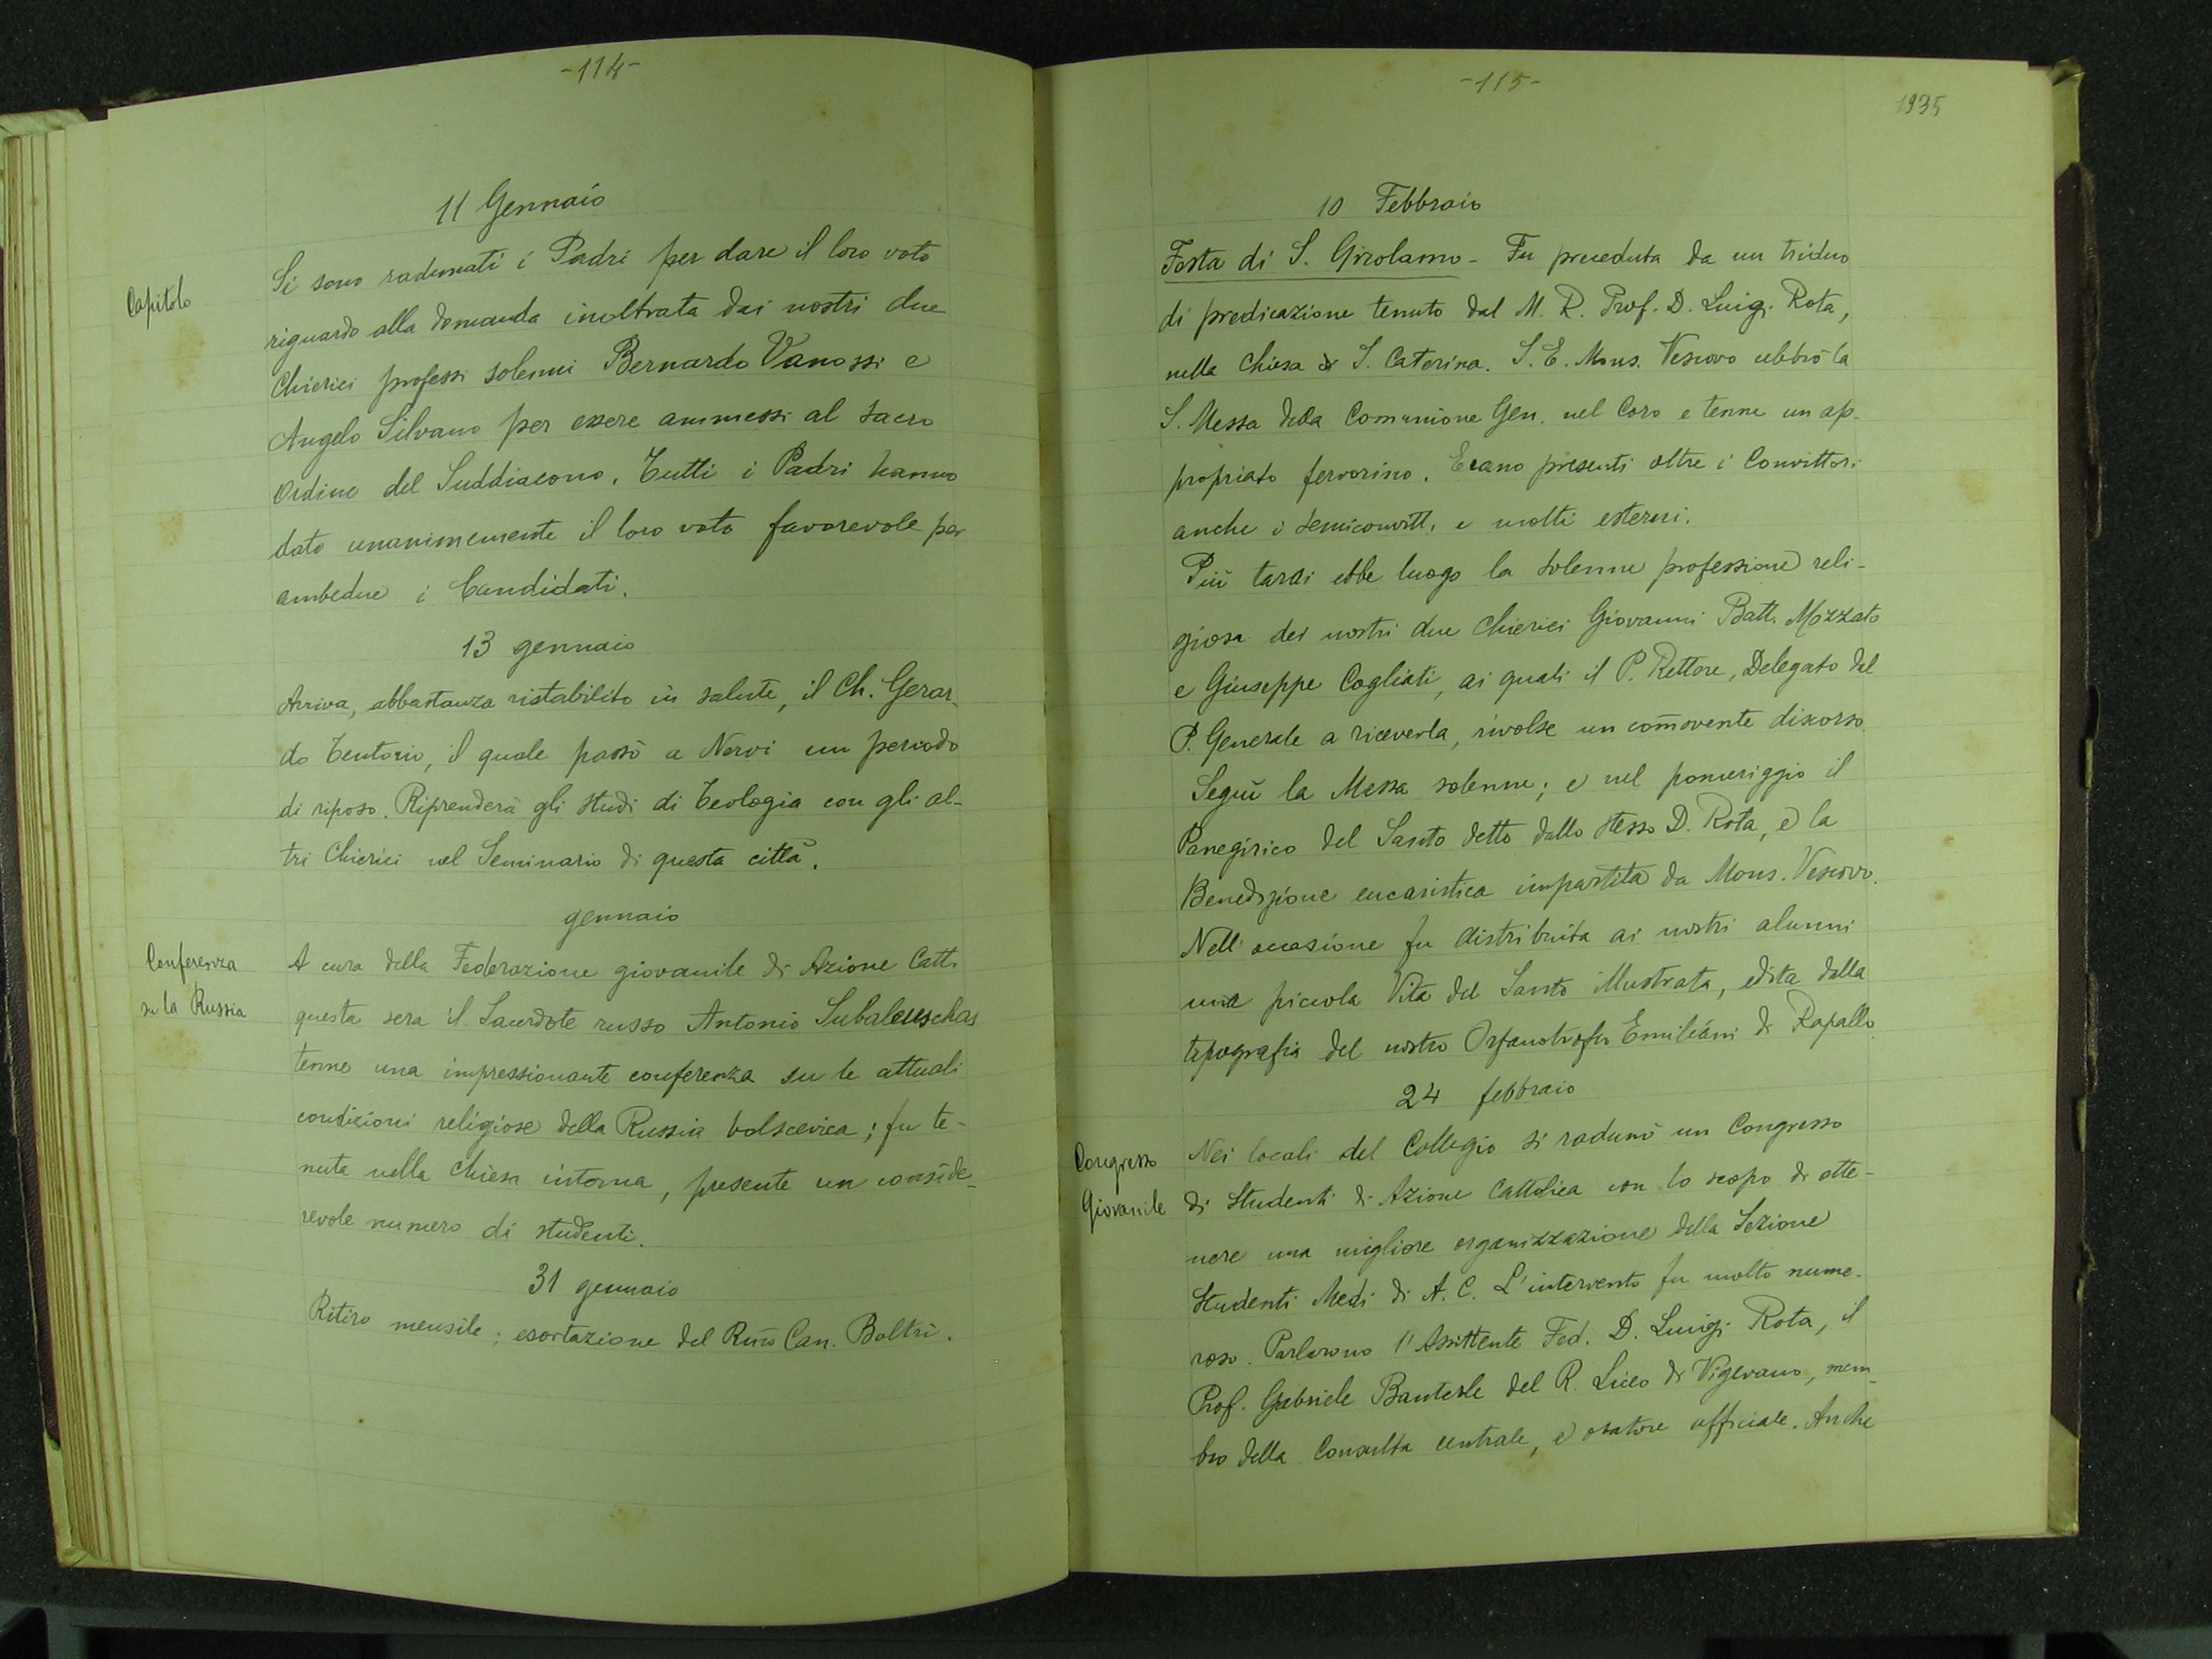 -114-
11 Gennaio
Capitolo
Si sono radunati i Padri per dare il loro voto
riguardo alla domanda inoltrata dai nostri due
Chierici professi solenni Bernardo Vanossi e
Angelo Silvano per essere ammessi al sacro
Ordine del Suddiacono. Tutti i Padri hanno
dato unanimemente il loro voto favorevole per
ambedue i Candidati.
13 gennaio
Arriva, abbastanza ristabilito in salute, il Ch. Gerar-
do Tentorio, il quale passò a Nervi un periodo
di riposo. Riprenderà gli studi di Teologia con gli al-
tri Chierici nel Seminario di questa città.
gennaio
Conferenza
su la Russia
A cura della Federazione giovanile di Azione Catt.
questa sera il Sacerdote russo Antonio
tenne una impressionante conferenza su le attuali
condizioni religiose della Russia bolscevica; fu te-
nuta nella chiesa interna, presente un conside-
revole numero di studenti.
31 gennaio
Ritiro mensile; esortazione del Rmo Can. Boltri.
-115-
1935
10 Febbraio
Festa di S. Girolamo - Fu preceduta da un triduo
di predicazione tenuto dal M. R. Prof. D. Luigi Rota,
nella Chiesa di S. Caterina. S. E. Mons. Vescovo celebrò la
S. Messa della Comunione Gen. nel Coro e tenne un ap-
propriato fervorino. Erano presenti oltre i Convittori
anche i semiconvitt. e molti esterni.
Più tardi ebbe luogo la solenne professione reli-
giosa dei nostri due Chierici Giovanni Batt. Mozzato
e Giuseppe Cogliati, ai quali il P. Rettore, Delegato del
P. Generale a riceverla, rivolse un com̄ovente discorso.
Seguì la Messa solenne; e nel pomeriggio il
Panegirico del Santo detto dallo stesso D. Rota, e la
Benedizione eucaristica impartita da Mons. Vescovo.
Nell'occasione fu distribuita ai nostri alunni
una piccola Vita del Santo illustrata, edita dalla
tipografia del nostro Orfanotrofio Emiliani di Rapallo.
24 febbraio
Congresso
Giovanile
Nei locali del Collegio si radunò un Congresso
di Studenti di Azione Cattolica con lo scopo di otte-
nere una migliore organizzazione della Sezione
Studenti Medi di A. C. L'intervento fu molto nume-
roso. Parlarono l'Assistente Fed. D. Luigi Rota, il
Prof. Gabriele Banterle del R. Liceo di Vigevano, mem-
bro della Consulta centrale, e oratore ufficiale. Anche